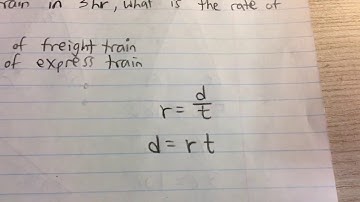 rain in 3hr, what is the rate of
of freight train
of express train
r = d/t
d = r t